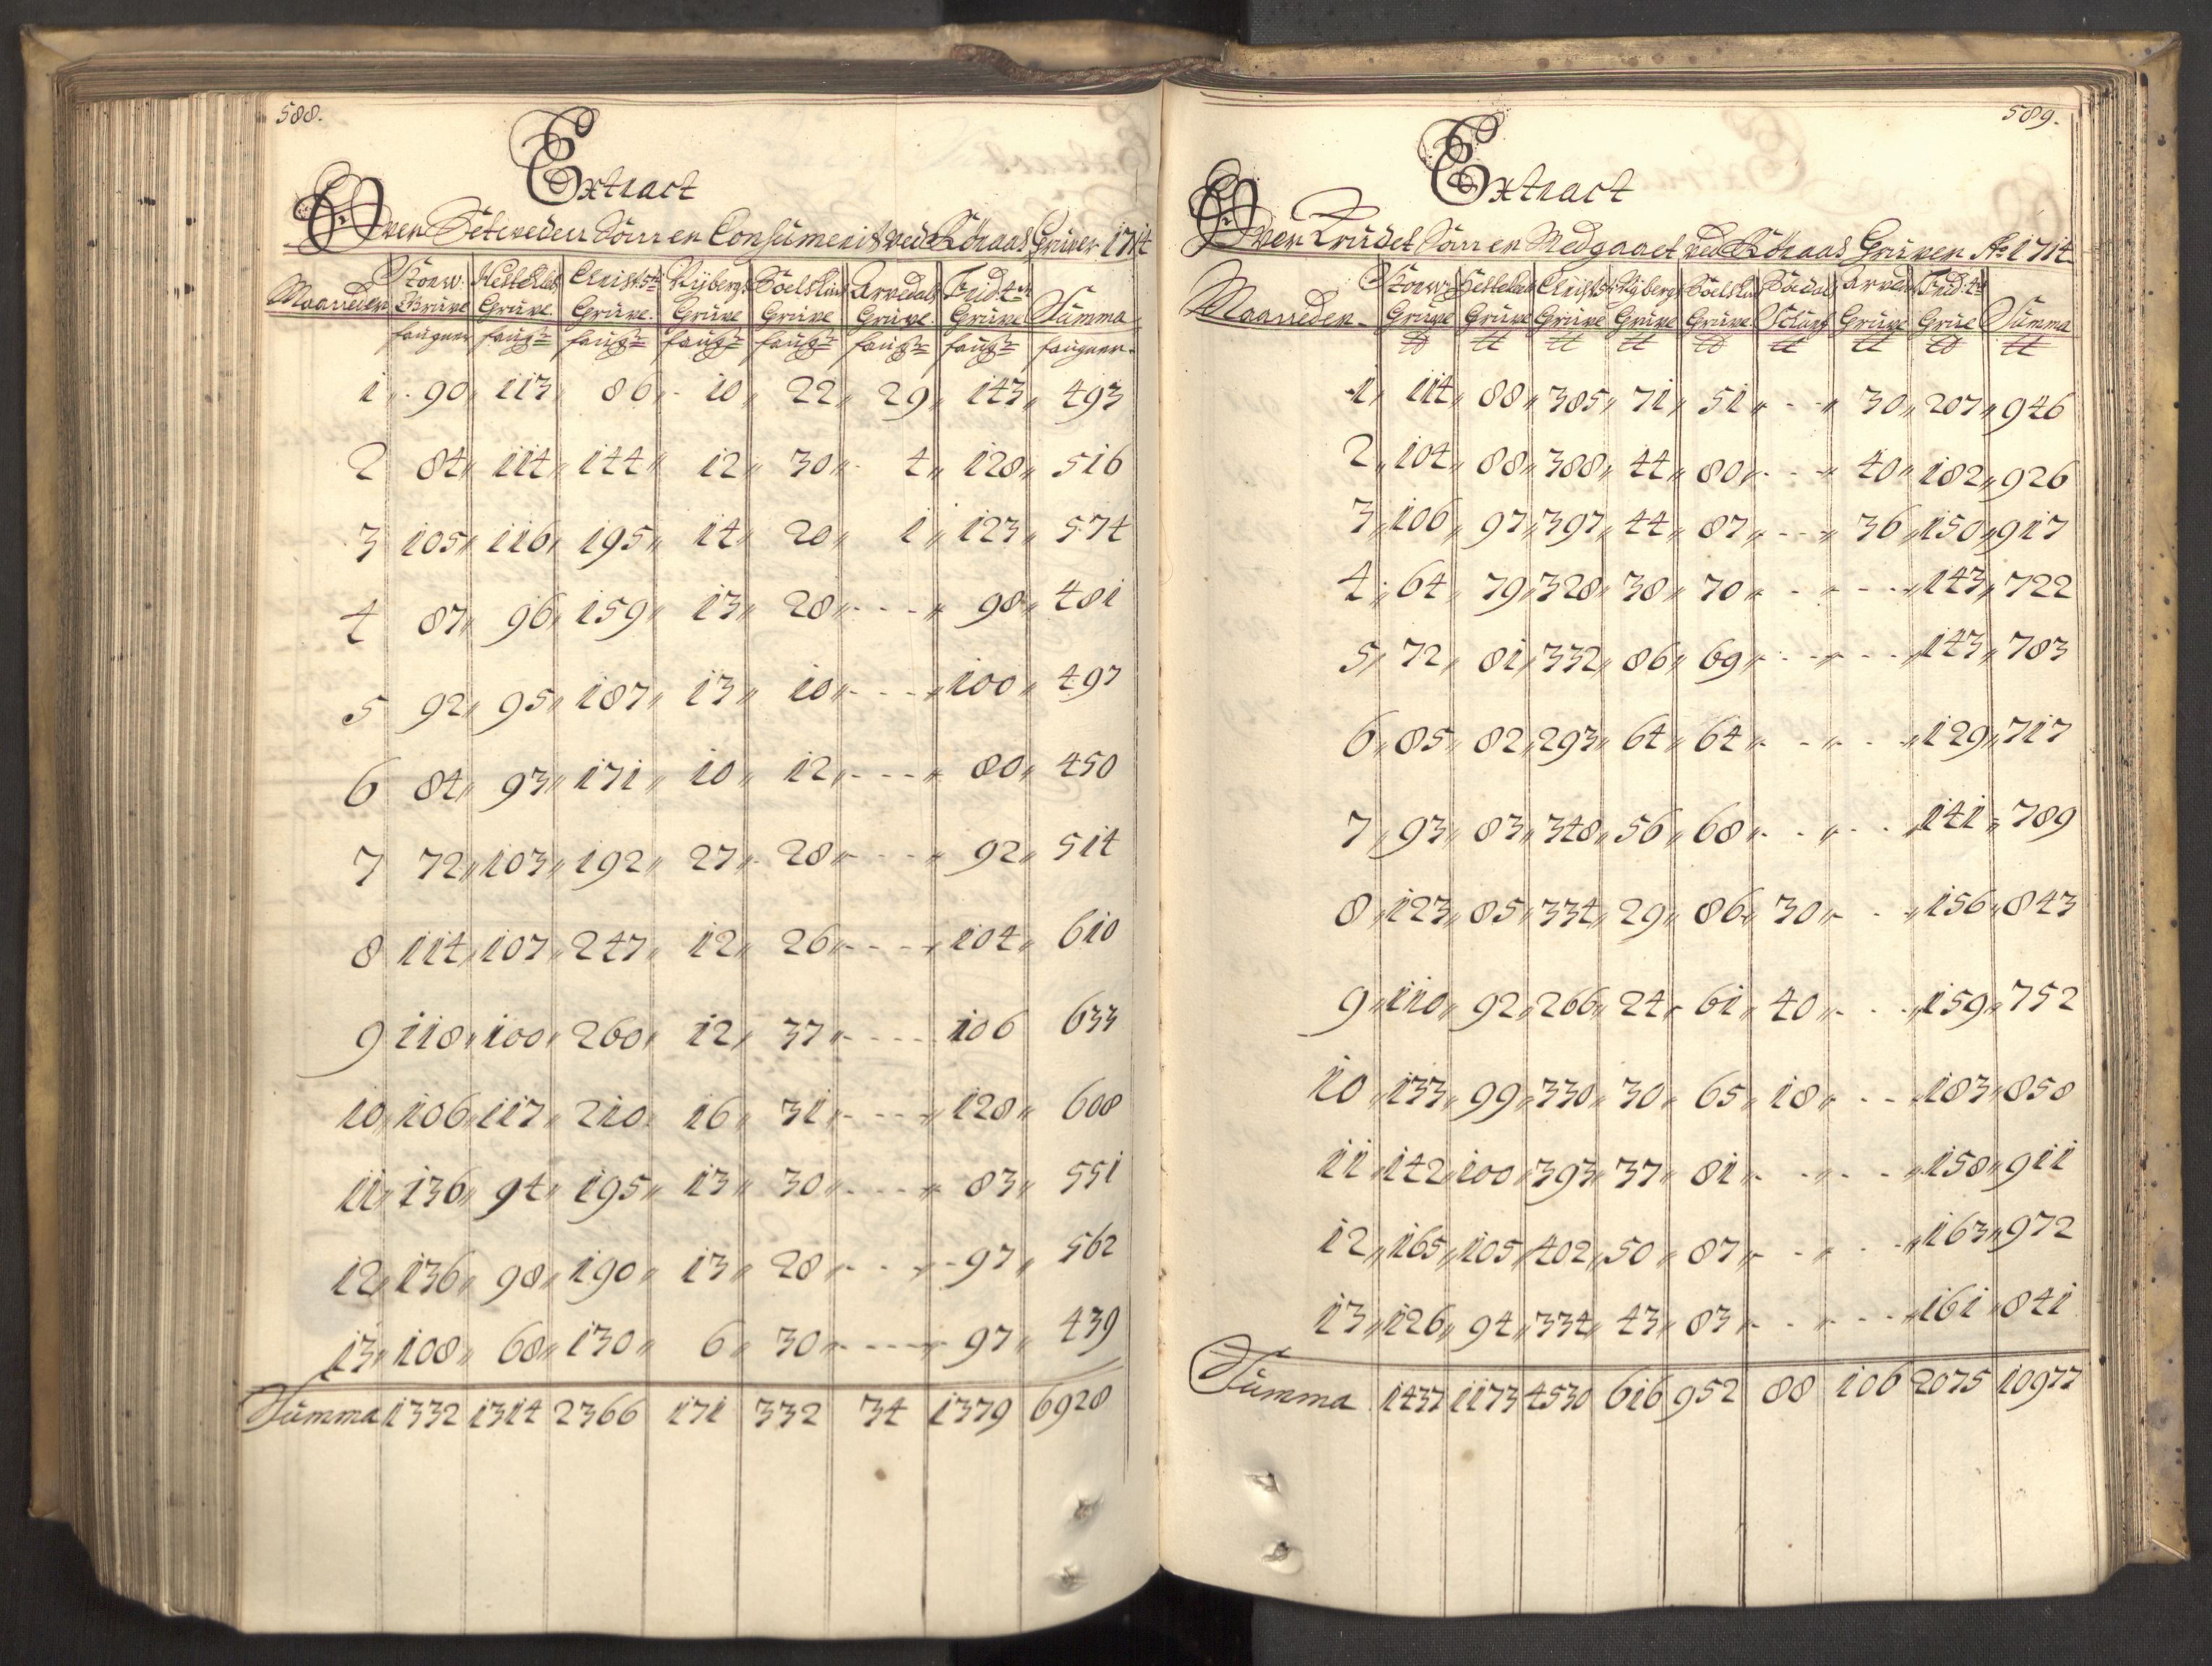 588.
Extract
Over Setveden som er Consumerit ved Röraas Gruver 1714
Maaneder Storw. Gruve Christ: 5te Gruve Nybergs Gruve Gruve Arvedals Gruve Frid: 4de Gruve Summa
faugner faug: faug: faug: faug: faug: faug: faugner
1 90 113 86 10 22 29 143 493
2 84 114 144 12 30 4 128 516
3 105 116 195 14 20 1 123 574
4 87 96 159 13 28 - - - 98 481
5 92 95 187 13 10 - - - 100 497
6 84 93 171 10 12 - - - 80 450
7 72 103 192 27 28 - - - 92 514
8 114 107 247 12 26 - - - 104 610
9 118 100 260 12 37 - - - 106 633
10 106 117 210 16 31 - - - 128 608
11 136 94 195 13 30 - - - 83 551
12 136 98 190 13 28 - - - 97 562
13 108 68 130 6 30 - - - 97 439
Summa 1332 1314 2366 171 332 34 1379 6928
589.
Extract
Over Krudet som er Medgaaet ved Röraas Gruver Ao 1714
Maaneder Storw: Gruve Gruve Christ: Gruve Nybergs Gruve Gruve Arved Gruve Frid: 4de Gruve Summa
℔ ℔ ℔ ℔ ℔ ℔ ℔ ℔ ℔
1 114 88 385 71 51 - - 30 207 946
2 104 88 388 44 80 - - 40 182 926
3 106 97 397 44 87 - - 36 150 917
4 64 79 328 38 70 - - - - 143 722
5 72 81 332 86 69 - - - - 143 783
6 85 82 293 64 64 - - - - 129 717
7 93 83 348 56 68 - - - - 141 789
8 123 85 334 29 86 30 - - 156 843
9 110 92 266 24 61 40 - - 159 752
10 133 99 330 30 65 18 - - 183 858
11 142 100 393 37 81 - - - - 158 911
12 165 105 402 50 87 - - - - 163 972
13 126 94 334 43 83 - - - - 161 841
Summa 1437 1173 4530 616 952 88 106 2075 10977